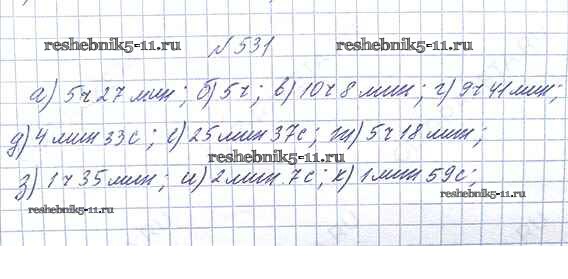 reshebnik5-11.ru №531 reshebnik5-11.ru
а) 5ч 27 мин; б) 5ч; в) 10ч 8 мин; г) 9ч 41 мин;
д) 4 мин 33с; е) 25 мин 37с; ж) 5ч 18 мин;
reshebnik5-11.ru
з) 1ч 35 мин; и) 2 мин 7с; к) 1 мин 59с;
reshebnik5-11.ru reshebnik5-11.ru